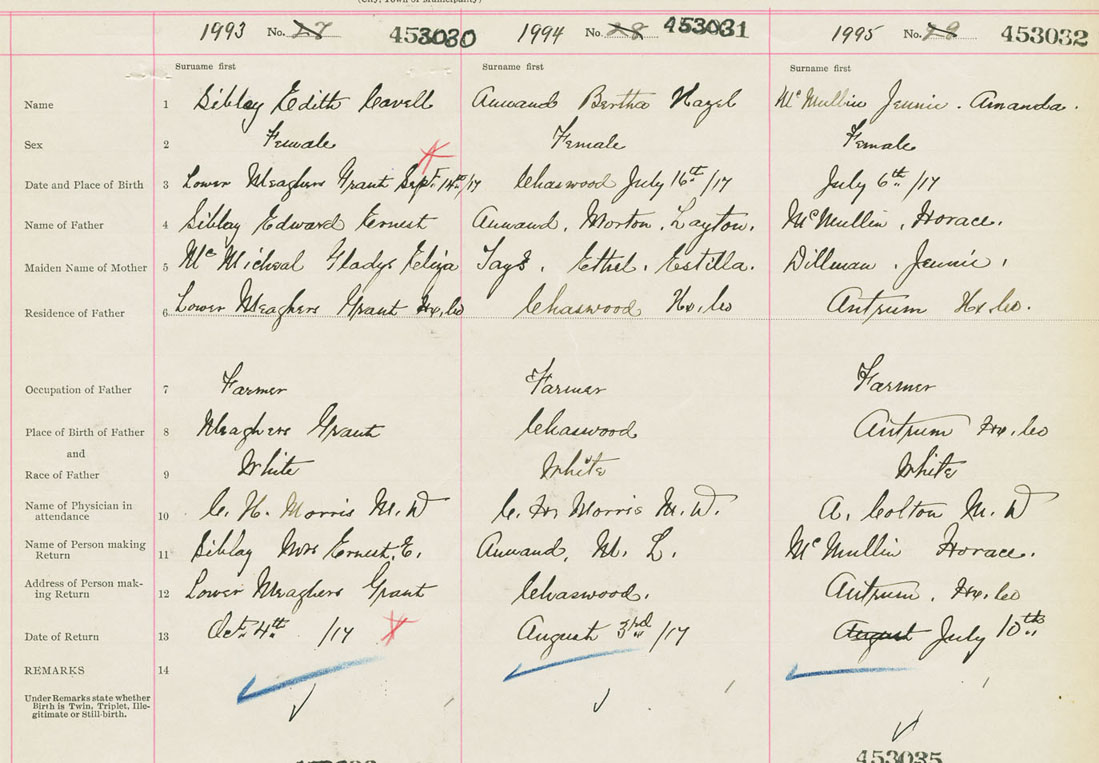 (City, Town or Municipality)
1993 No. 27 453030 1994 No. 28 453031 1995 No. 29 453032
Suruame first Surname first Surname first
Name 1 Sibley Edith Cavell Annand Bertha Hazel McMullin Jennie. Amanda.
Sex 2 Female Female Female
Date and Place of Birth 3 Lower Meaghers Grant Sept. 14th/17 Chaswood July 16th/17 July 6th/17
Name of Father 4 Sibley Edward Ernest Annand, Morton, Layton. McMullin, Horace.
Maiden Name of Mother 5 McMicheal Gladys Eliza Tays, Ethel, Estilla. Dillman, Jennie,
Residence of Father 6 Lower Meaghers Grant Hx, Co Chaswood Hx, Co Antrum Hx, Co.
Occupation of Father 7 Farmer Farmer Farmer
Place of Birth of Father 8 Meaghers Grant Chaswood Antrum Hx, Co
and
Race of Father 9 White White White
Name of Physician in
attendance 10 C. H. Morris M. D C. H. Morris M. D. A. Colton M. D
Name of Person making
Return 11 Sibley Mrs Ernest, E. Annand, M. L. McMullin Horace.
Address of Person mak-
ing Return 12 Lower Meaghers Grant Chaswood. Antrum, Hx, Co
Date of Return 13 Oct. 4th /17 August 3rd/17 August July 10th
REMARKS 14
Under Remarks state whether
Birth is Twin, Triplet, Ille-
gitimate or Still-birth.
453035